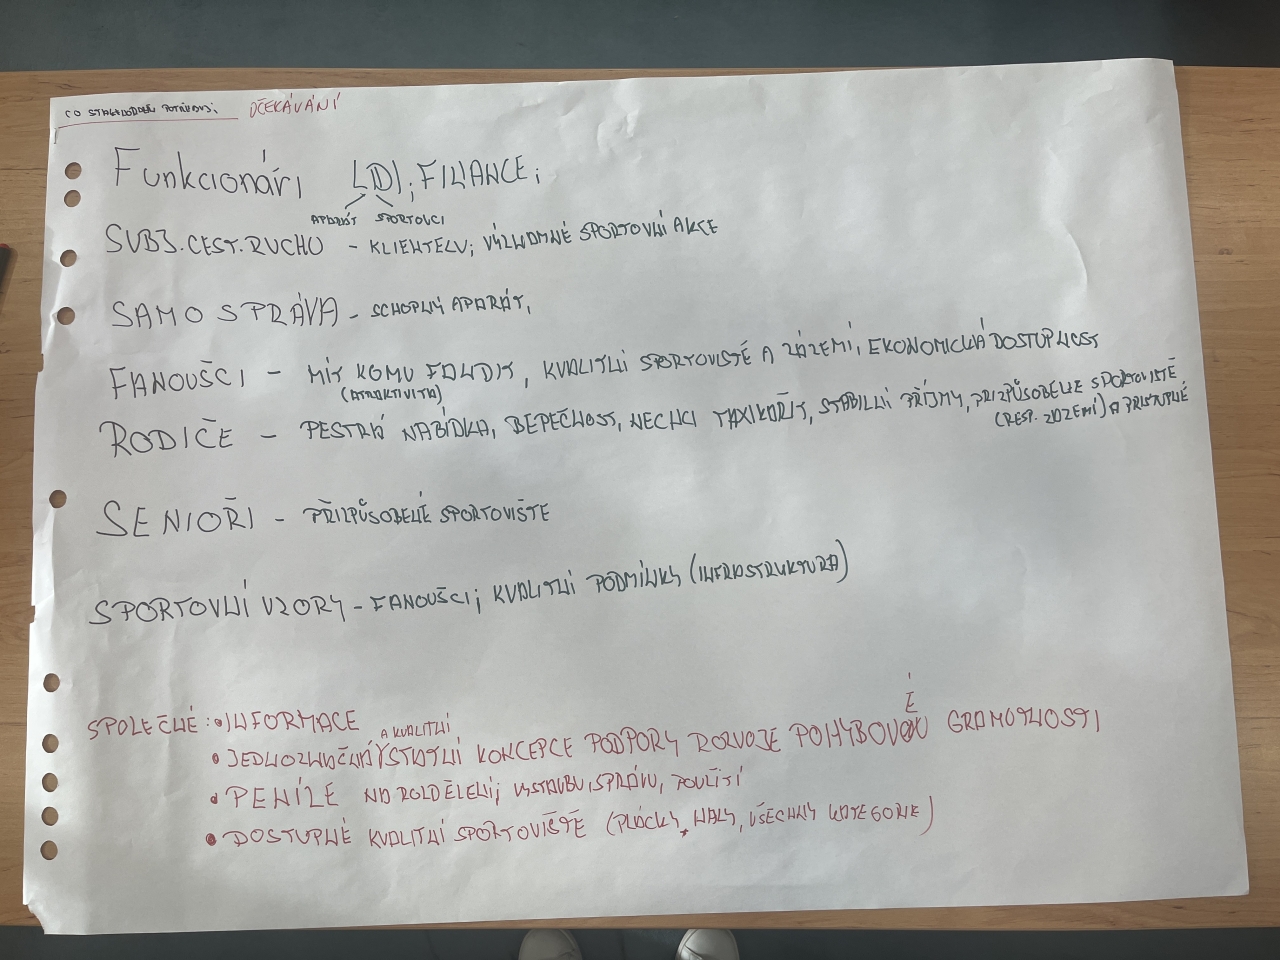 CO STAKEHOLDEŘI POTŘEBUJÍ OČEKÁVÁNÍ
Funkcionáři LIDI; FINANCE;
APARÁT SPORTOVCI
SUBJ. CEST. RUCHU - KLIENTELU; VÝZNAMNÉ SPORTOVNÍ AKCE
SAMOSPRÁVA - SCHOPNÝ APARÁT,
FANOUŠCI - MÍT KOMU FANDIT, KVALITNÍ SPORTOVIŠTĚ A ZÁZEMÍ, EKONOMICKÁ DOSTUPNOST
(ATRAKTIVITA)
RODIČE - PESTRÁ NABÍDKA, BEPEČNOST, NECHCI TAXIKAŘIT, STABILNÍ PŘÍJMY, PŘIZPŮSOBENÉ SPORTOVIŠTĚ
(RESP. ZÁZEMÍ) A PŘÍSTUPNÉ
SENIOŘI - PŘIZPŮSOBENÉ SPORTOVIŠTĚ
SPORTOVNÍ VZORY - FANOUŠCI; KVALITNÍ PODMÍNKY (INFRASTRUKTURA)
SPOLEČNÉ: • INFORMACE
• JEDNOZNAČNÁ A KVALITNÍ STÁTNÍ KONCEPCE PODPORY ROZVOJE POHYBOVÉ GRAMOTNOSTI
• PENÍZE NA ROZDĚLENÍ; VÝSTAVBU, SPRÁVU, POUŽITÍ
• DOSTUPNÉ KVALITNÍ SPORTOVIŠTĚ (PLÁCKY, HALY, VŠECHNY KATEGORIE)